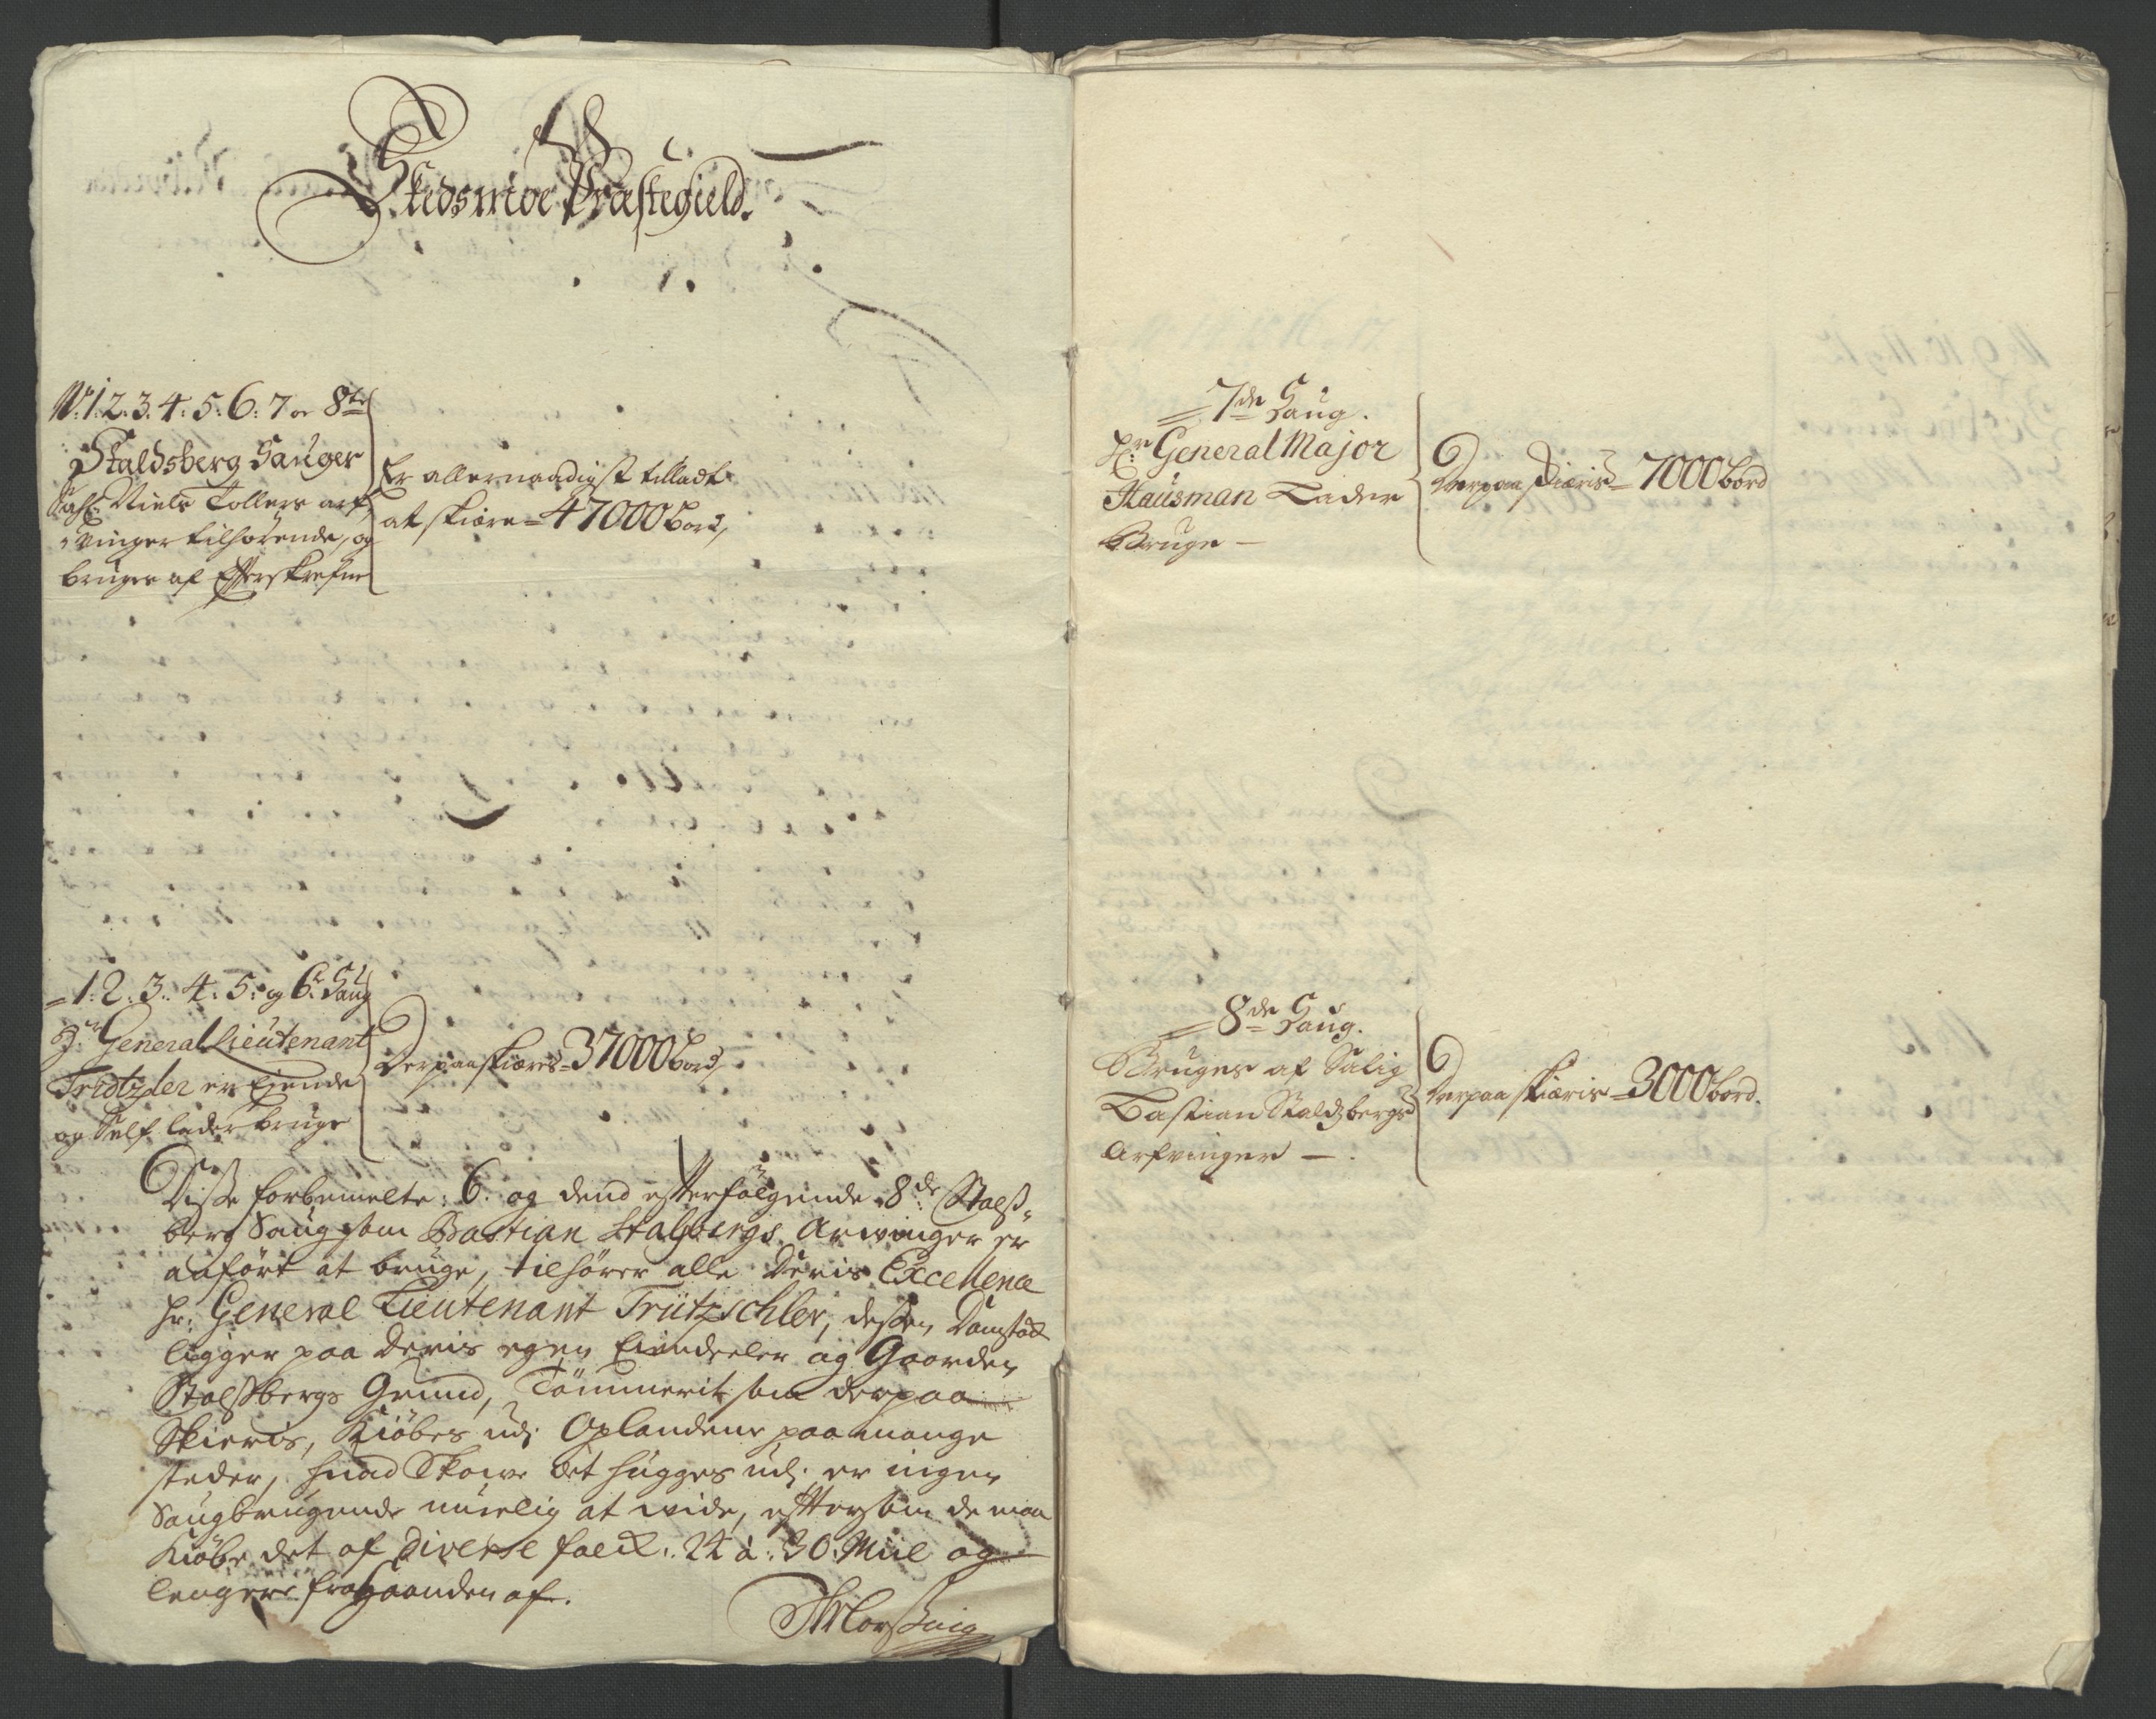 Skedsmoe Præstegield.
No: 1. 2. 3. 4: 5: 6: 7 oc 8de
Staldsberg Sauger
Sahl: Niels Tollers arf,,
,,vinger tilhørende, og
bruges af Efterskrefne
Er allernaadigst tilladt
at skiære = 47000 bord,
= 1: 2. 3: 4: 5: og 6te Saug
Hr General Lieutenant
Tridtzler er Eiende
og Self lader bruge
Derpaa skiæres = 37000 bord,
Disse forbemelte: 6. og dend efterfølgende 8de Stalß,,
berg Saug som Bastian Stalsbergs Arvinger er
anført at bruge, tilhører alle Deris Excellence
Hr: General Lieutenant Trützschler, desßen Damstock
ligger paa Deris egen Eiendeeler og Gaarden
Stalßbergs Grund, Tømmerit som derpaa
Skieris, Kiøbes udj Oplandene paa mange
steder, huad Skowe det hugges udj er ingen
Saugbrugende muelig at wide, efftersom de maa
Kiøbe det af diverse folck: 24 à: 30: Miil og
lenger fra Haanden af.
= 7de Saug.
Hr: General Major
Hausman Lader
Bruge –
Derpaa skiæris = 7000 bord
= 8de Saug.
Bruges af Salig
Bastian Staldzbergs
Arfvinger – .
Derpaa skiæris = 3000 bord.